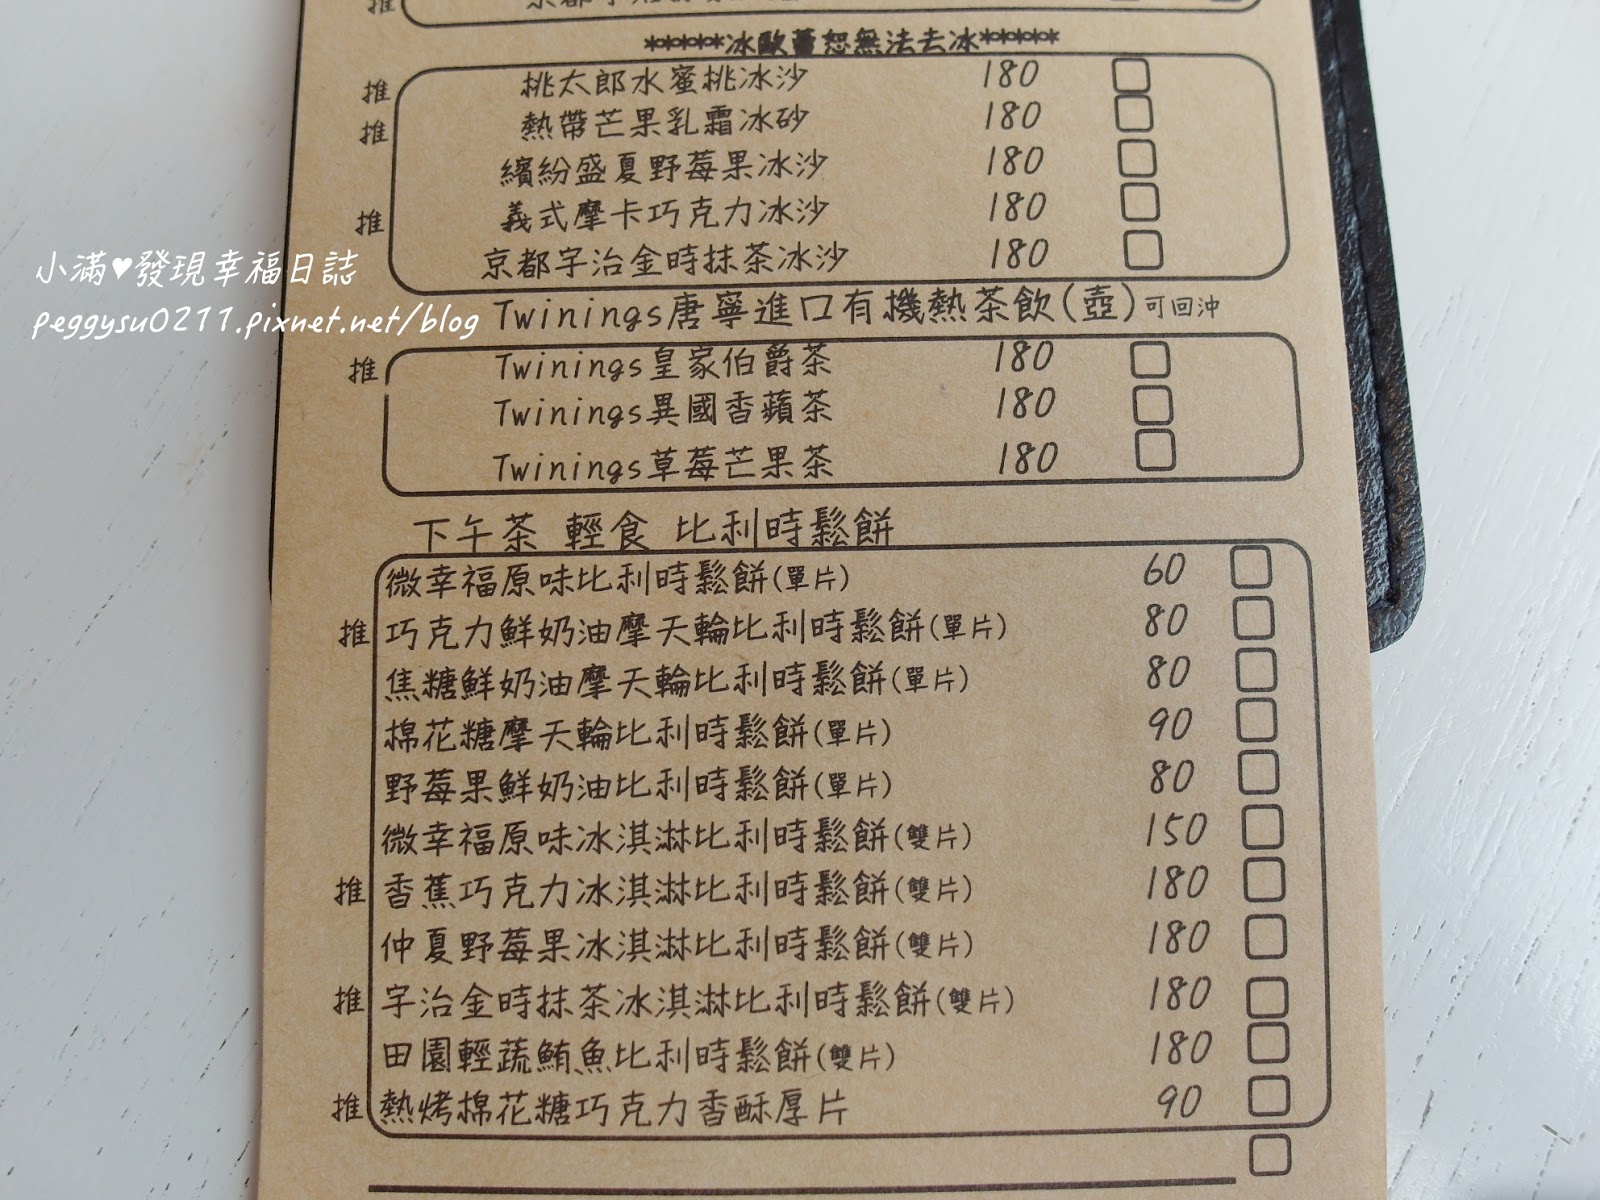 推
*****冰歐蕾恕無法去冰*****
推 桃太郎水蜜桃冰沙 180
推 熱帶芒果乳霜冰砂 180
繽紛盛夏野莓果冰沙 180
推 義式摩卡巧克力冰沙 180
京都宇治金時抹茶冰沙 180
小滿♥發現幸福日誌
peggysu0211.pixnet.net/blog
Twinings唐寧進口有機熱茶飲(壺)可回沖
推 Twinings皇家伯爵茶 180
Twinings異國香蘋茶 180
Twinings草莓芒果茶 180
下午茶 輕食 比利時鬆餅
微幸福原味比利時鬆餅(單片) 60
推 巧克力鮮奶油摩天輪比利時鬆餅(單片) 80
焦糖鮮奶油摩天輪比利時鬆餅(單片) 80
棉花糖摩天輪比利時鬆餅(單片) 90
野莓果鮮奶油比利時鬆餅(單片) 80
微幸福原味冰淇淋比利時鬆餅(雙片) 150
推 香蕉巧克力冰淇淋比利時鬆餅(雙片) 180
仲夏野莓果冰淇淋比利時鬆餅(雙片) 180
推 宇治金時抹茶冰淇淋比利時鬆餅(雙片) 180
田園輕蔬鮪魚比利時鬆餅(雙片) 180
推 熱烤棉花糖巧克力香酥厚片 90